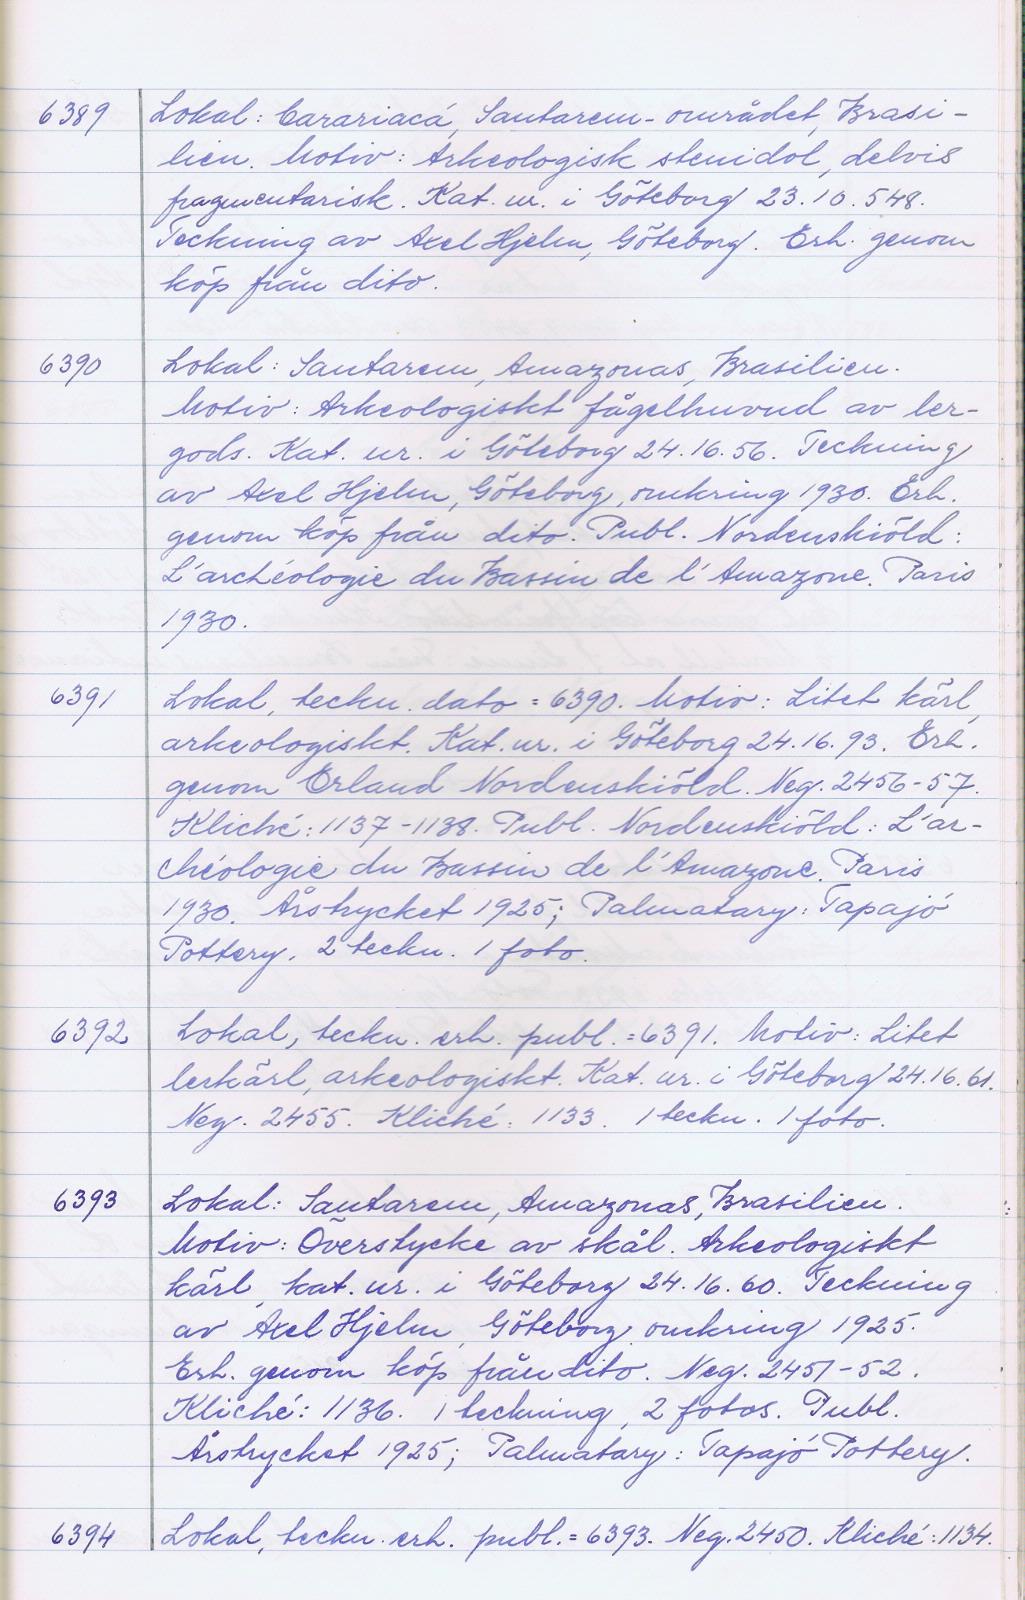 6389 Lokal: Carariacá, Santarem-området, Brasi-
lien. Motiv: Arkeologisk stenidol, delvis
fragmentarisk. Kat. nr. i Göteborg 23.10.548.
Teckning av Axel Hjelm, Göteborg. Erh. genom
köp från dito.
6390 Lokal: Santarem, Amazonas, Brasilien.
Motiv: Arkeologiskt fågelhuvud av ler-
gods. Kat. nr. i Göteborg 24.16.56. Teckning
av Axel Hjelm, Göteborg, omkring 1930. Erh.
genom köp från dito. Publ. Nordenskiöld:
L'archéologie du Bassin de l'Amazone. Paris
1930.
6391 Lokal, teckn. dato = 6390. Motiv: Litet kärl,
arkeologiskt. Kat. nr. i Göteborg 24.16.93. Erh.
genom Erland Nordenskiöld. Neg. 2456-57.
Kliché: 1137-1138. Publ. Nordenskiöld: L'ar-
chéologie du Bassin de l'Amazone. Paris
1930. Årstrycket 1925; Palmatary: Tapajó
Pottery. 2 teckn. 1 foto.
6392 Lokal, teckn. erh. publ. = 6391. Motiv: Litet
lerkärl, arkeologiskt. Kat. nr. i Göteborg 24.16.61.
Neg. 2455. Kliché: 1133. 1 teckn. 1 foto.
6393 Lokal: Santarem, Amazonas, Brasilien.
Motiv: Överstycke av skål. Arkeologiskt
kärl, kat. nr. i Göteborg 24.16.60. Teckning
av Axel Hjelm, Göteborg, omkring 1925.
Erh. genom köp från dito. Neg. 2451-52.
Kliché: 1136. 1 teckning, 2 fotos. Publ.
Årstrycket 1925; Palmatary: Tapajó Pottery.
6394 Lokal, teckn. erh. publ. = 6393. Neg. 2450. Kliché: 1134.